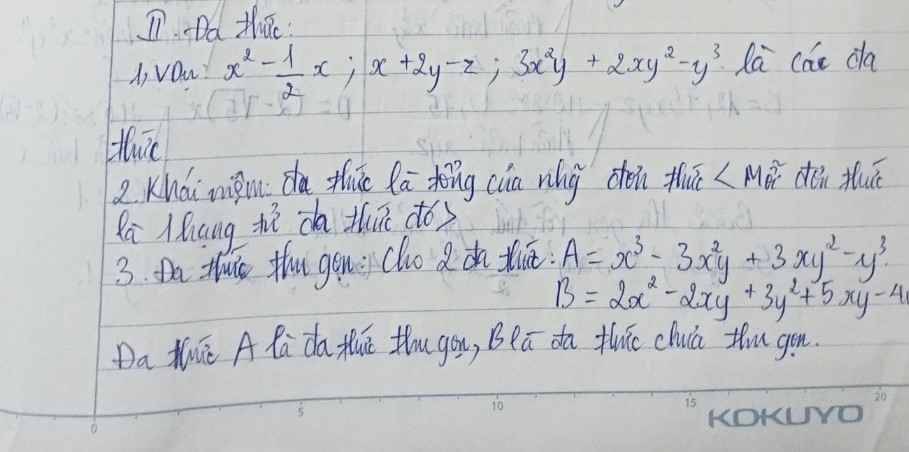 II. Đa thức:
1, VDụ: x² - 1/2 x ; x + 2y - z ; 3x²y + 2xy² - y³ là các đa
thức
2. Khái niệm: đa thức là tổng của nhữg đơn thức < Mỗi đơn thức
là 1 hạng tử đa thức đó >
3. Đa thức thu gọn: Cho 2 đa thức: A = x³ - 3x²y + 3xy² - y³.
B = 2x² - 2xy + 3y² + 5xy - 4
Đa thức A là đa thức thu gọn, B là đa thức chưa thu gọn.
0 5 10 15 20
KOKUYO